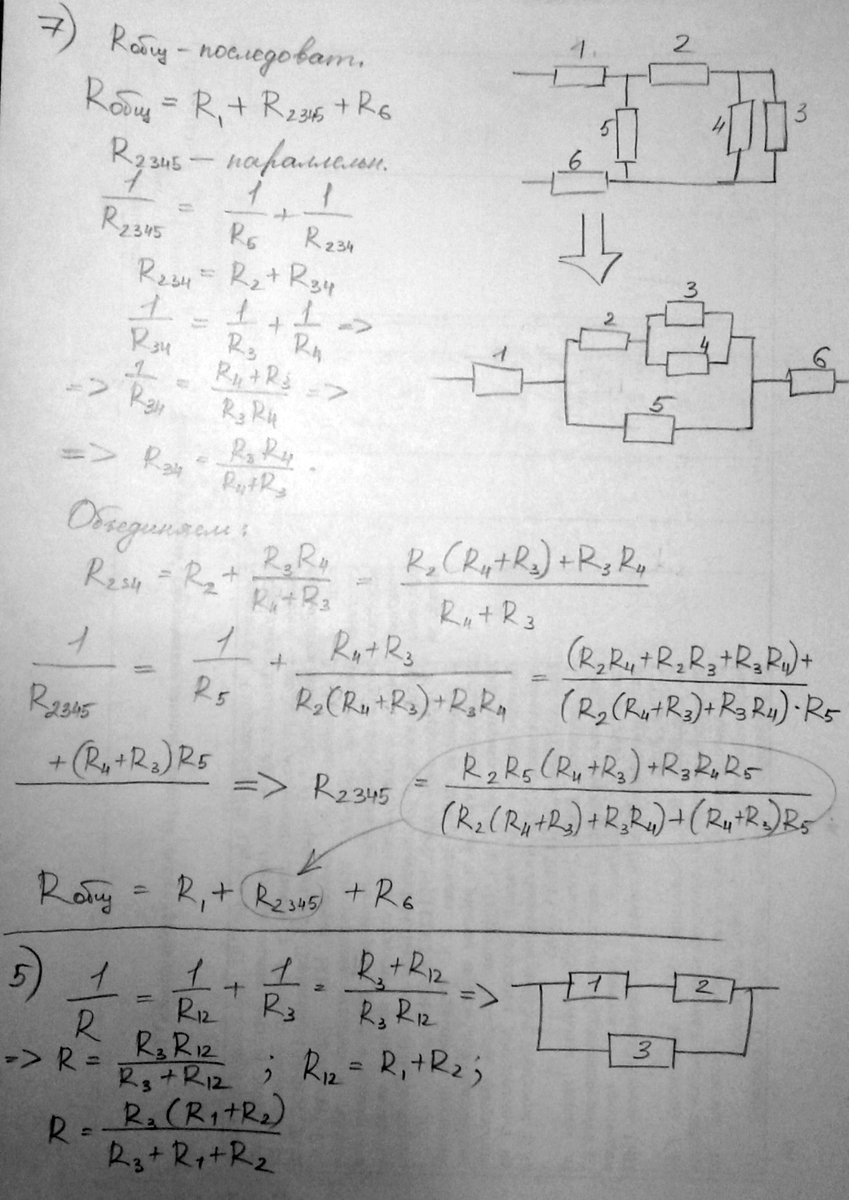 7) Rобщ – последоват.
Rобщ = R₁ + R₂₃₄₅ + R₆
R₂₃₄₅ – параллельн.
1/R₂₃₄₅ = 1/R₆ + 1/R₂₃₄
R₂₃₄ = R₂ + R₃₄
1/R₃₄ = 1/R₃ + 1/R₄ =>
=> 1/R₃₄ = (R₄+R₃)/(R₃R₄) =>
=> R₃₄ = (R₃R₄)/(R₄+R₃) .
Объединяем:
R₂₃₄ = R₂ + (R₃R₄)/(R₄+R₃) = (R₂(R₄+R₃)+R₃R₄)/(R₄+R₃)
1/R₂₃₄₅ = 1/R₅ + (R₄+R₃)/(R₂(R₄+R₃)+R₃R₄) = (R₂R₄+R₂R₃+R₃R₄)+/(R₂(R₄+R₃)+R₃R₄)·R₅
+(R₄+R₃)R₅ => R₂₃₄₅ = (R₂R₅(R₄+R₃)+R₃R₄R₅)/((R₂(R₄+R₃)+R₃R₄)+(R₄+R₃)R₅)
Rобщ = R₁ + R₂₃₄₅ + R₆
1 2
5 4 3
6
3
2
4
1 6
5
5) 1/R = 1/R₁₂ + 1/R₃ = (R₃+R₁₂)/(R₃R₁₂) =>
=> R = (R₃R₁₂)/(R₃+R₁₂) ; R₁₂ = R₁+R₂;
R = (R₃(R₁+R₂))/(R₃+R₁+R₂)
1 2
3